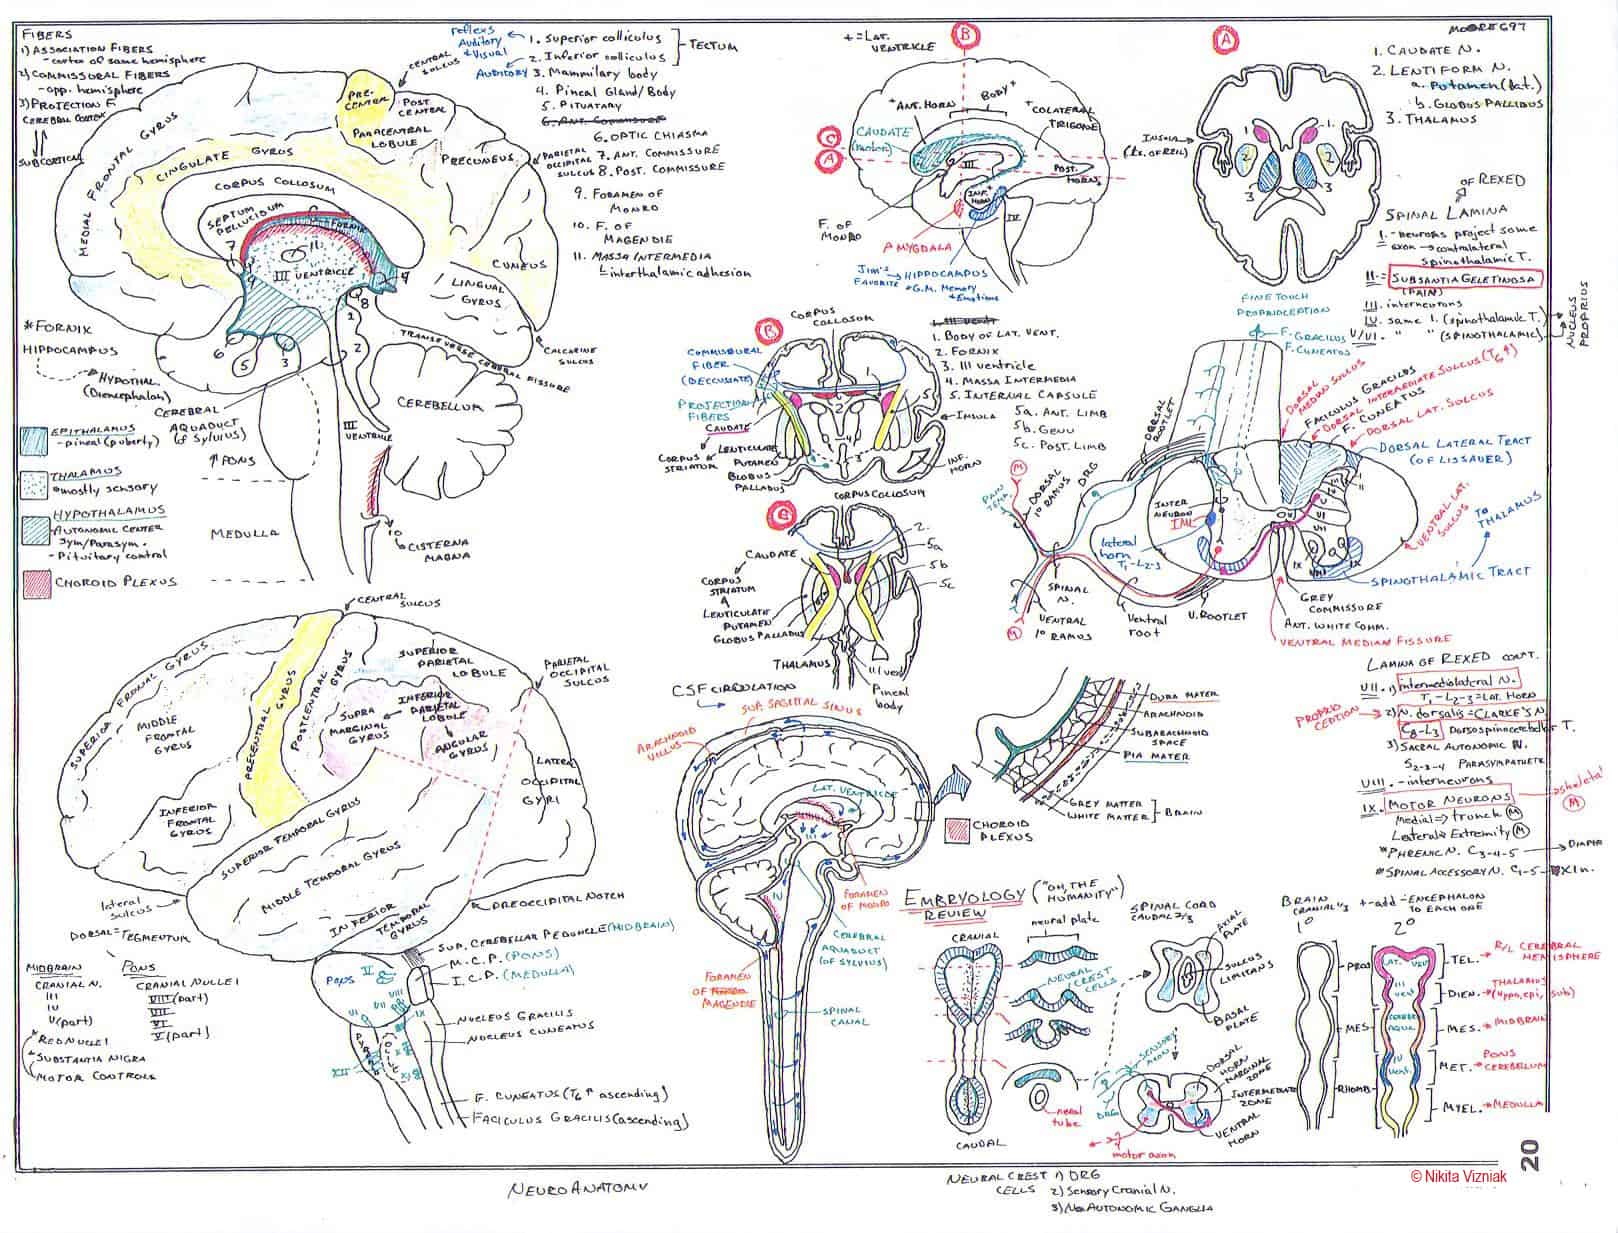 FIBERS
1) ASSOCIATION FIBERS
- cortex of same hemisphere
2) COMMISSURAL FIBERS
- opp. hemisphere
3) PROJECTION F.
CEREBRAL CORTEX
SUBCORTICAL
reflexs
Auditory
& Visual
AUDITORY
1. Superior colliculus
2. Inferior colliculus
TECTUM
3. Mammilary body
4. Pineal Gland/Body
5. PITUATARY
6. OPTIC CHIASMA
7. ANT. COMMISSURE
8. POST. COMMISSURE
9. FORAMEN OF
MONRO
10. F. OF
MAGENDIE
11. MASSA INTERMEDIA
interthalamic adhesion
CENTRAL
SULCUS
PRE-
CENTRAL
POST
CENTRAL
PARACENTRAL
LOBULE
PRECUNEUS
PARIETAL
OCCIPITAL
SULCUS
MEDIAL FRONTAL GYRUS
CINGULATE GYRUS
CORPUS COLLOSUM
SEPTUM
PELLUCIDUM
FORNIX
III VENTRICLE
CUNEUS
LINGUAL
GYRUS
CALCARINE
SULCUS
TRANSVERSE CEREBRAL FISSURE
CEREBELLUM
*FORNIX
HIPPOCAMPUS
HYPOTHAL.
(Diencephalon)
CEREBRAL
AQUADUCT
(of SYLVIUS)
PONS
VENTRICLE
MEDULLA
10
CISTERNA
MAGNA
EPITHALAMUS
- pineal (puberty)
THALAMUS
*mostly sensory
HYPOTHALAMUS
- AUTONOMIC CENTER
Sym/Parasym.
- Pituitary control
CHOROID PLEXUS
+ = LAT.
VENTRICLE
B
C
A
+ANT. HORN
BODY+
+COLLATERAL
TRIGONE
CAUDATE
(motor)
III
POST.
HORN+
INF.+
HORN
IV
F. OF
MONRO
AMYGDALA
JIM'S
FAVORITE
HIPPOCAMPUS
*G.M. Memory
*Emotions
A
MOORE G97
1. CAUDATE N.
2. LENTIFORM N.
a. Putamen (Lat.)
b. GLOBUS PALLIDUS
3. THALAMUS
INSULA
(Is. OF REIL)
OF REXED
SPINAL LAMINA
I. - neurons project some
axon → contralateral
Spinothalamic T.
II - SUBSANTIA GELETINOSA
(PAIN)
III. interneurons
IV. same 1. (spinothalamic T.)
V/VI. " (SPINOTHALAMIC)
NUCLEUS
PROPRIUS
FINE TOUCH
PROPRIOCEPTION
F. GRACILUS
F. CUNEATOS
DORSAL
MEDIAN SULCUS
FACICULUS GRACILUS
DORSAL INTERMEDIATE SULCUS (T6↑)
F. CUNEATUS
DORSAL LAT. SULCUS
DORSAL LATERAL TRACT
(OF LISSAUER)
VENTRAL LAT.
SULCUS
TO
THALAMUS
SPINOTHALAMIC TRACT
GREY
COMMISSURE
ANT. WHITE COMM.
VENTRAL MEDIAN FISSURE
DORSAL
ROOTLET
DRG
DORSAL
1° RAMUS
PAIN
TEMP.
M
INTER
NEURON
IML
lateral
horn
T1-L2-3
SPINAL
N.
VENTRAL
1° RAMUS
Ventral
root
V. ROOTLET
M
B
CORPUS
COLLOSUM
COMMISSURAL
FIBER
(DECCUSSATE)
PROJECTION
FIBERS
CAUDATE
CORPUS
STRIATUM
LENTICULATE
PUTAMEN
GLOBUS
PALLADUS
INSULA
INF.
HORN
1. BODY OF LAT. VENT.
2. FORNIX
3. III ventricle
4. MASSA INTERMEDIA
5. INTERNAL CAPSULE
5a. ANT. LIMB
5b. GENU
5c. POST. LIMB
CORPUS COLLOSUM
C
2.
5a
5b
5c
CAUDATE
CORPUS
STRIATUM
LENTICULATE
PUTAMEN
GLOBUS PALLADUS
THALAMUS
III vent
Pineal
body
CENTRAL
SULCUS
SUPERIOR FRONTAL GYRUS
MIDDLE
FRONTAL
GYRUS
INFERIOR
FRONTAL
GYRUS
PRECENTRAL GYRUS
POSTCENTRAL GYRUS
SUPERIOR
PARIETAL
LOBULE
INFERIOR
PARIETAL
LOBULE
SUPRA
MARGINAL
GYRUS
ANGULAR
GYRUS
PARIETAL
OCCIPITAL
SULCUS
LATERAL
OCCIPITAL
GYRI
SUPERIOR TEMPORAL GYRUS
MIDDLE TEMPORAL GYRUS
INFERIOR
TEMPORAL
GYRUS
lateral
sulcus
PREOCCIPITAL NOTCH
DORSAL = TEGMENTUM
MIDBRAIN
CRANIAL N.
III
IV
V (part)
*RED NUCLEI
*SUBSTANTIA NIGRA
*MOTOR CONTROLS
PONS
CRANIAL NUCLEI
VIII (part)
VII
VI
V (part)
SUP. CEREBELLAR PEDUNCLE (MIDBRAIN)
M.C.P. (PONS)
I.C.P. (MEDULLA)
PONS
NUCLEUS GRACILIS
NUCLEUS CUNEATUS
XII
F. CUNEATUS (T6↑ ascending)
FACICULUS GRACILIS (ascending)
CSF CIRCULATION
SUP. SAGITTAL SINUS
ARACHNOID
VILLUS
LAT. VENTRICLE
III
IV
FORAMEN
OF MONRO
CEREBRAL
AQUADUCT
(OF SYLVIUS)
FORAMEN
OF MAGENDIE
SPINAL
CANAL
DURA MATER
ARACHNOID
SUBARACHNOID
SPACE
PIA MATER
GREY MATTER
WHITE MATTER
BRAIN
CHOROID
PLEXUS
LAMINA OF REXED CONT.
VII. 1) Intermediolateral N.
T1-L2-3 = LAT. HORN
PROPRIOCEPTION
2) N. dorsalis = CLARKE'S N.
C8-L3 Dorsospinocerebellar T.
3) SACRAL AUTONOMIC N.
S2-3-4 PARASYMPATHETIC
VIII. - interneurons
IX. MOTOR NEURONS
skeletal
M
Medial ⇒ trunk M
Lateral ⇒ Extremity M
*PHRENIC N. C3-4-5
*SPINAL ACCESSORY N. C1-5
EMBRYOLOGY
REVIEW
("OH, THE
HUMANITY")
neural plate
CRANIAL
NEURAL
CREST
CELLS
CAUDAL
neural
tube
SPINAL CORD
CAUDAL 2/3
ALAR
PLATE
SULCUS
LIMITANS
BASAL
PLATE
SENSORY
AXON
DRG
motor axon
DORSAL
HORN
MARGINAL
ZONE
INTERMEDIATE
ZONE
VENTRAL
HORN
BRAIN
CRANIAL 1/3
+-add -ENCEPHALON
TO EACH ONE
1°
2°
PROS
MES
RHOMB
LAT. VENT
III
vent
CEREBR
AQU.
IV
Vent.
TEL.
R/L CEREBRAL
HEMISPHERE
DIEN.
THALAMUS
(Hypo, epi, sub)
MES.
MIDBRAIN
MET.
PONS
CEREBELLUM
MYEL.
MEDULLA
20
© Nikita Vizniak
NEUROANATOMY
NEURAL CREST
CELLS
1) DRG
2) Sensory Cranial N.
3) AUTONOMIC GANGLIA